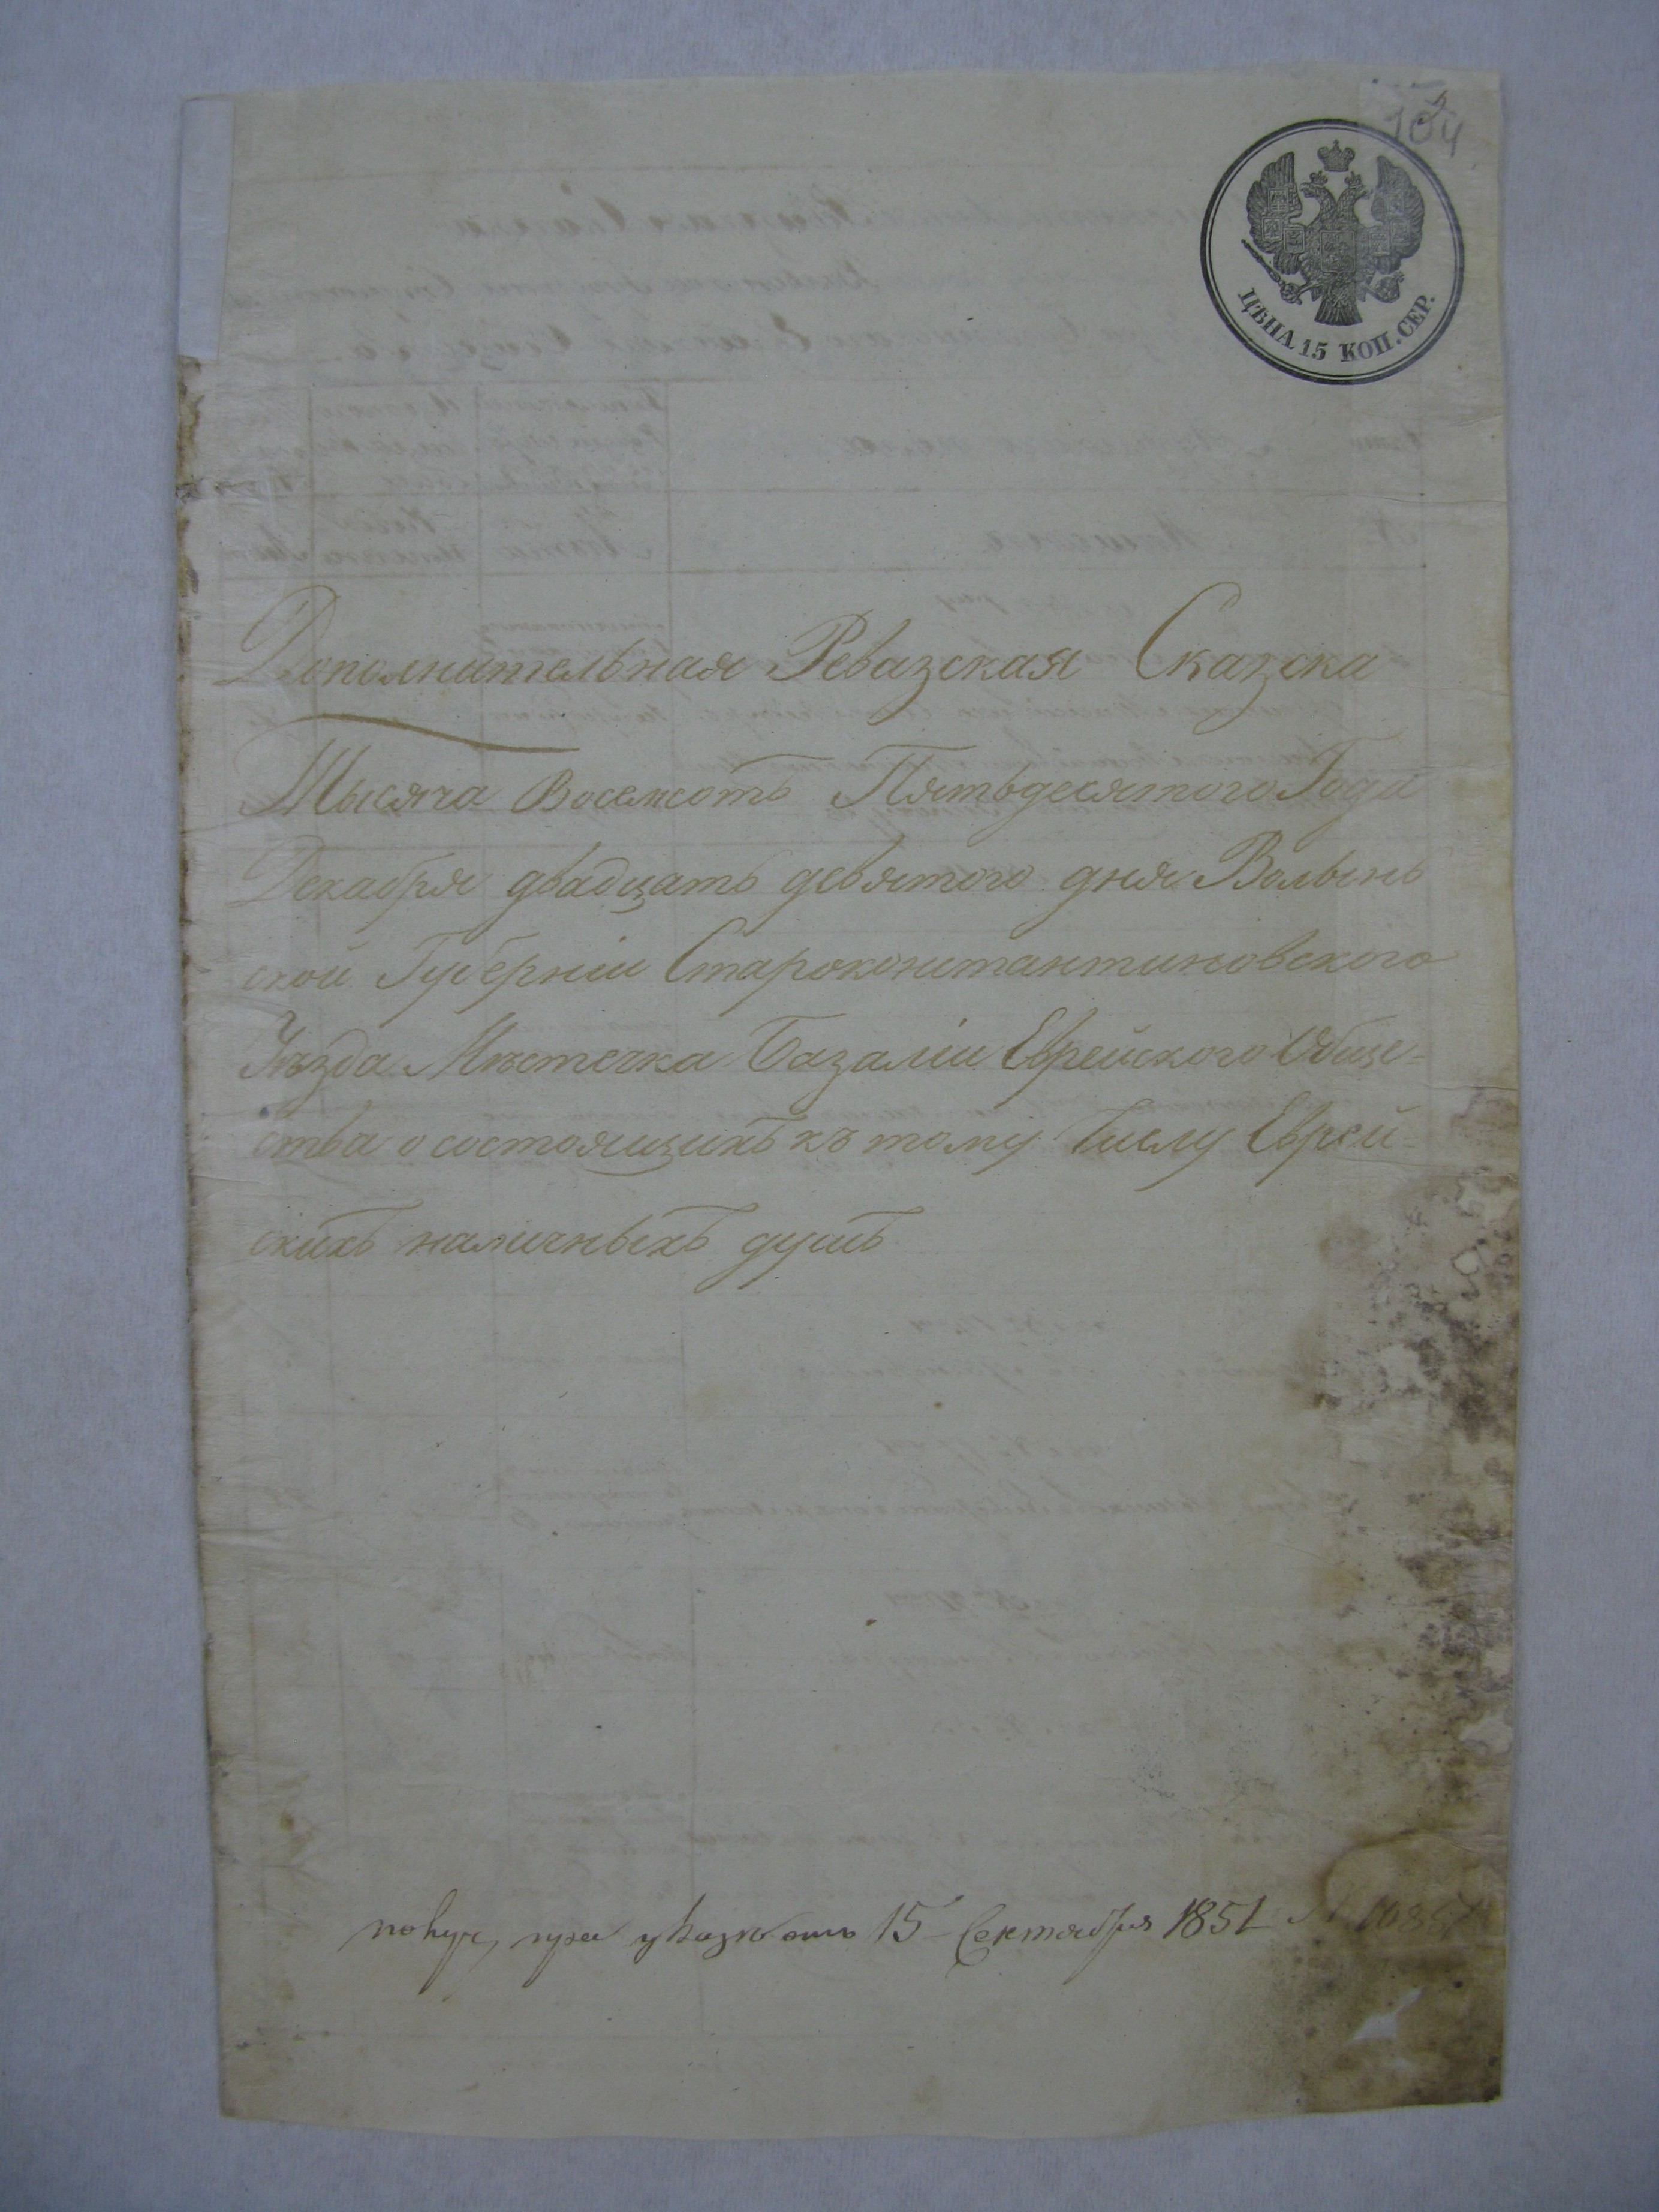 104
ЦѢНА 15 КОП. СЕР.
Дополнительная Ревазская Сказска
Тысяча Восемсотъ Пятьдесятого Года
Декабря двадцать девятого дня Волынь
ской Губерніи Староконстантиновского
Уѣзда Мѣстечка Базаліи Еврейского Обще-
ства о состоящихъ къ тому Числу Еврей-
скихъ наличныхъ душъ
при указѣ отъ 15 Сентября 1851